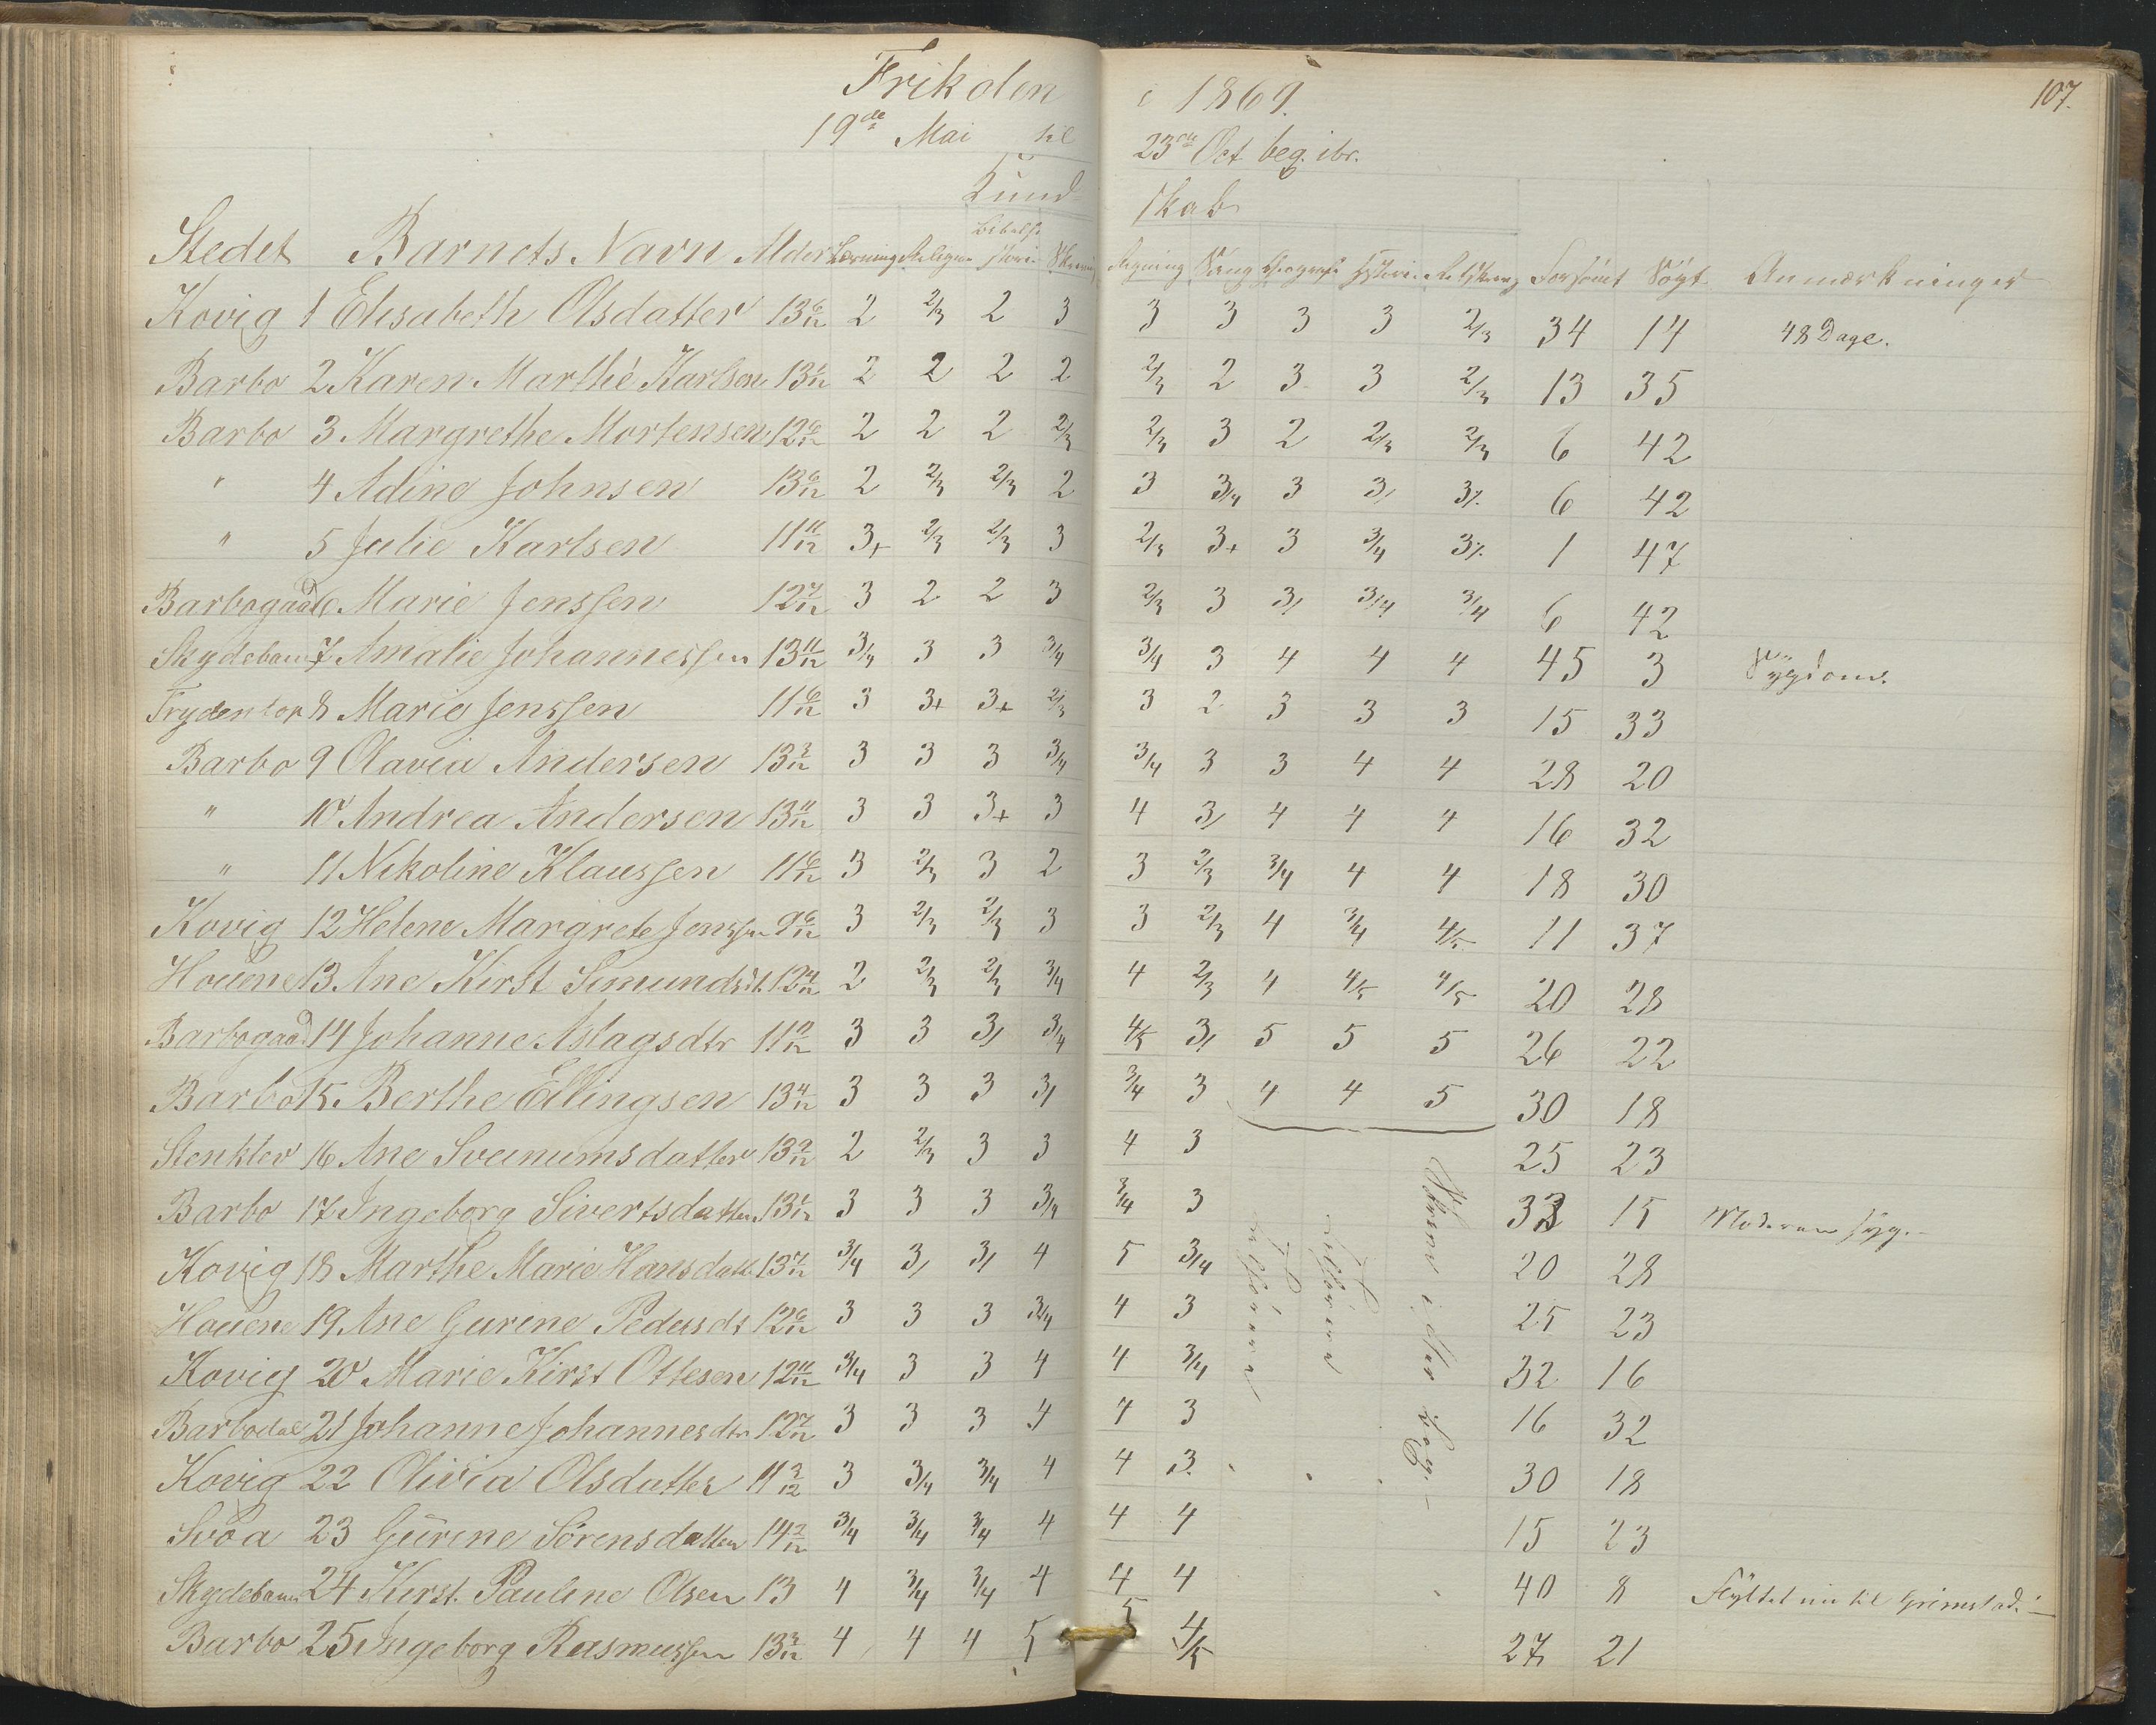 107.
Friskolen i 1869.
19de Mai til 23de Oct. beg. ibr.
Kundskab
Stedet Barnets Navn Alder Læsning Religion Bibelhistorie Skrivning Regning Sang Geografi Historie Retskrivng Forsömt Sögt Anmærkninger
Kovig 1 Elisabeth Olsdatter 13 6/12 2 2/3 2 3 3 3 3 3 2/3 34 14 48 Dage.
Barbo 2 Karen Marthe Karlsen 13 1/12 2 2 2 2 2/3 2 3 3 2/3 13 35
Barbo 3 Margrethe Mortensen 12 6/12 2 2 2 2/3 2/3 3 2 2/3 2/3 6 42
" 4 Adine Johnsen 13 6/12 2 2/3 2/3 2 3 3/4 3 3/ 3/. 6 42
" 5 Julie Karlsen 11 11/12 3+ 2/3 2/3 3 2/3 3+ 3 3/4 3/. 1 47
Barbogaad 6 Marie Jenssen 12 7/12 3 2 2 3 2/3 3 3/ 3/4 3/4 6 42
Skydebanen 7 Amalie Johannessen 13 11/12 3/4 3 3 3/4 3/4 3 4 4 4 45 3 Sygdom.
Frydentop 8 Marie Jenssen 11 6/12 3 3+ 3+ 2/3 3 2 3 3 3 15 33
Barbo 9 Olavia Andersen 13 3/12 3 3 3 3/4 3/4 3 3 4 4 28 20
" 10 Andrea Andersen 13 11/12 3 3 3+ 3 4 3/ 4 4 4 16 32
" 11 Nikoline Klaussen 11 6/12 3 2/3 3 2 3 2/3 3/4 4 4 18 30
Kovig 12 Helene Margrete Jenssen 9 6/12 3 2/3 2/3 3 3 2/3 4 3/4 4/5 11 37
Houene 13 Ane Kirst Simundsdt. 12 4/12 2 2/3 2/3 3/4 4 2/3 4 4/5 4/5 20 28
Barbogaad 14 Johanne Aslagsdtr 11 11/12 3 3 3/ 3/4 4/5 3/ 5 5 5 26 22
Barbo 15. Berthe Ellingsen 13 4/12 3 3 3 3/ 3/4 3 4 4 5 30 18
Stenklev 16 Ane Sveinumsdatter 13 9/12 2 2/3 3 3 4 3 25 23
Barbo 17 Ingeborg Sivertsdatter 13 1/12 3 3 3 3/4 3/4 3 33 15 Moderen syg.
Kovig 18 Marthe Marie Hansdatt 13 7/12 3/4 3/ 3/ 4 5 3/4 20 28
Houene 19 Ane Gurine Pedersdt 12 6/12 3 3 3 3/4 4 3 25 23
Kovig 20 Marie Kirst Ottesen 12 11/12 3/4 3 3 4 4 3/4 32 16
Barbodal 21 Johanne Johannesdtr 12 7/12 3 3 3 4 4 3 16 32
Kovig 22 Olivia Olsdatter 11 3/12 3 3/4 3/4 4 4 3. 30 18
Svoa 23 Gürine Sörensdatter 14 2/12 3/4 3/4 3/4 4 4 4 15 23
Skydebanen 24 Kirst. Pauline Olsen 13 4 3/4 3/4 4 4 4 40 8 Flyttet nu til Grimstad.
Barbo 25 Ingeborg Rasmussen 13 3/12 4 4 4 5 5 4/5 27 21
tilhörere
tilhörere
Skrev i Bog.